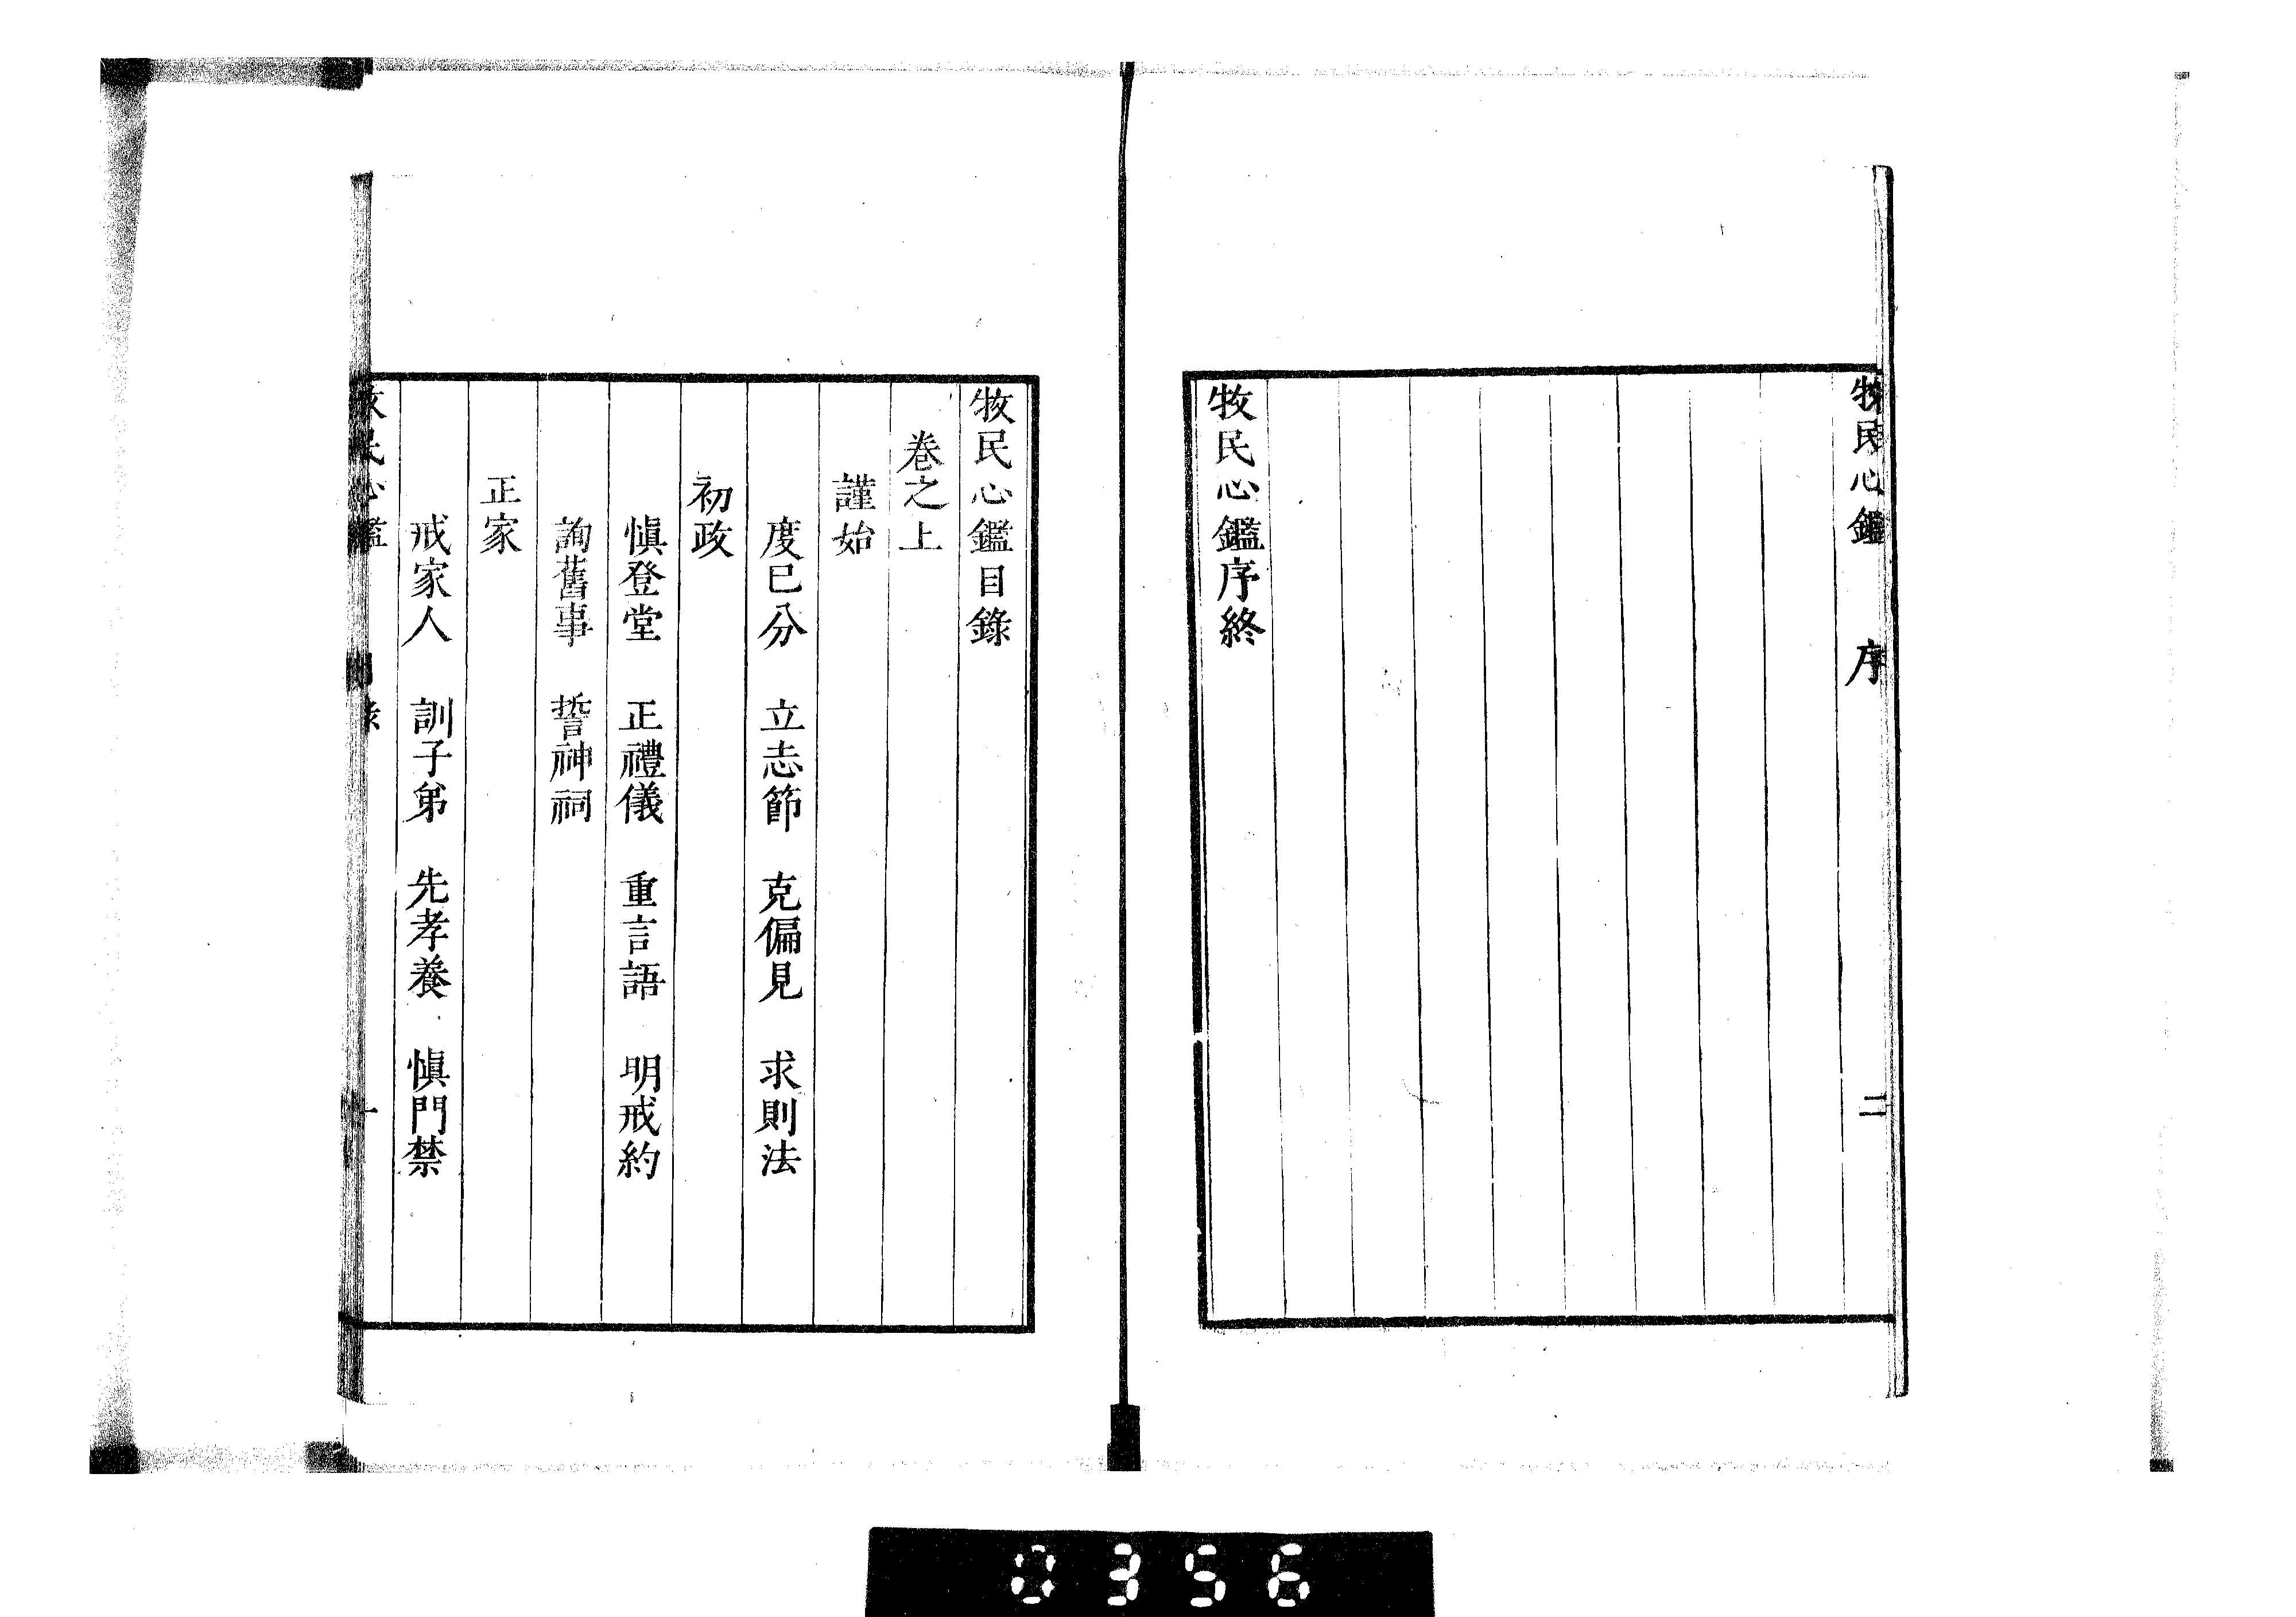 牧民心鑑　序　二
牧民心鑑序終
牧民心鑑目錄
卷之上
謹始
度已分　立志節　克偏見　求則法
初政
愼登堂　正禮儀　重言語　明戒約
詢舊事　誓神祠
正家
戒家人　訓子弟　先孝養　愼門禁
牧民心鑑　目錄　一
0356